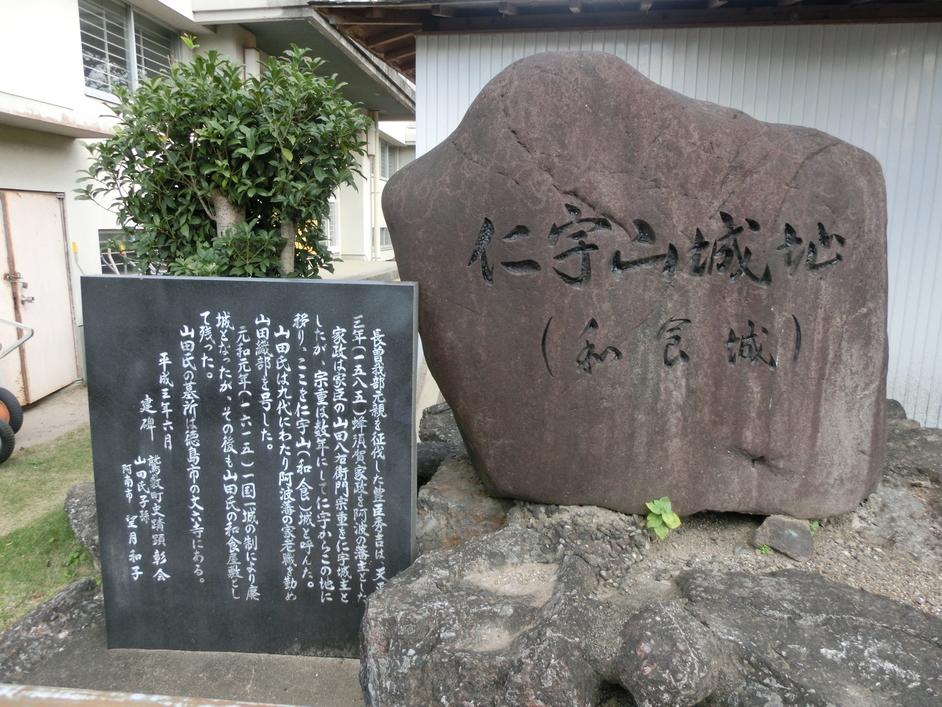 仁宇山城址
(和食城)
長曽我部元親を征伐した豊臣秀吉は、天正
三年(一五八五)蜂須賀家政を阿波の藩主とした
家政は家臣の山田八右衛門宗重を仁宇城主と
したが 宗重は数年にして仁宇からこの地に
移り、ここを仁宇山(和食)城と呼んだ。
山田氏は九代にわたり阿波藩の家老職を勤め
山田織部を号した。
元和元年(一六一五)一国一城の制により廃
城となったが、その後も山田氏の和食屋敷とし
て残った。
山田氏の墓所は徳島市の丈六寺にある。
平成三年六月
建碑
鷲敷町史蹟顕彰会
山田氏子孫
阿南市 望月和子